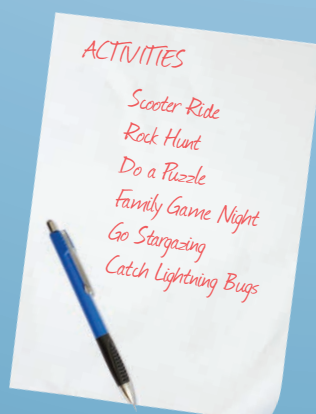 ACTIVITIES
Scooter Ride
Rock Hunt
Do a Puzzle
Family Game Night
Go Stargazing
Catch Lightning Bugs